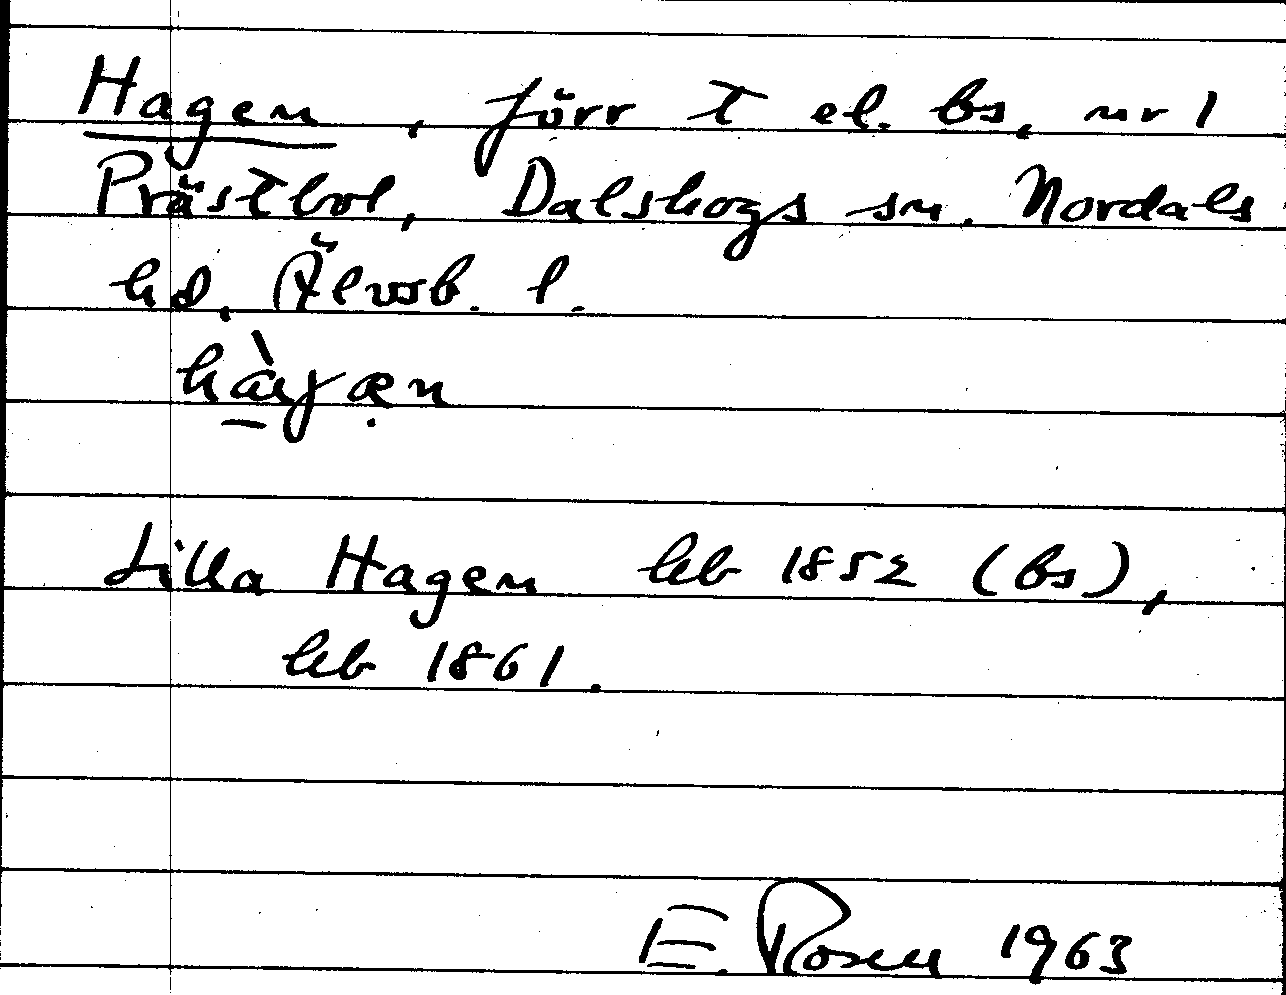 Hagen, förr t el. bs, nr 1
Prästbol, Dalskogs sn. Nordals
hd, Älvsb. l.
Lilla Hagen hb 1852 (bs),
hb 1861.
E. Rosen 1963